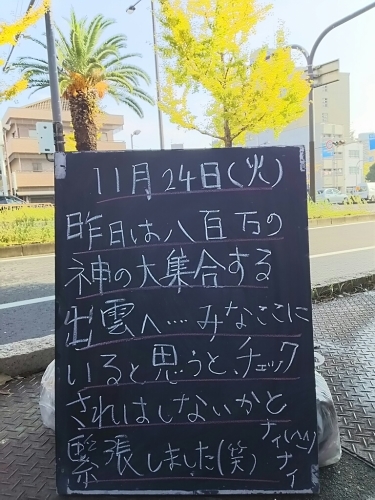 11月24日(火)
昨日は八百万の
神の大集合する
出雲へ…みなここに
いると思うと、チェック
されはしないかと
緊張しました(笑)
ナイ(^^)
ナイ